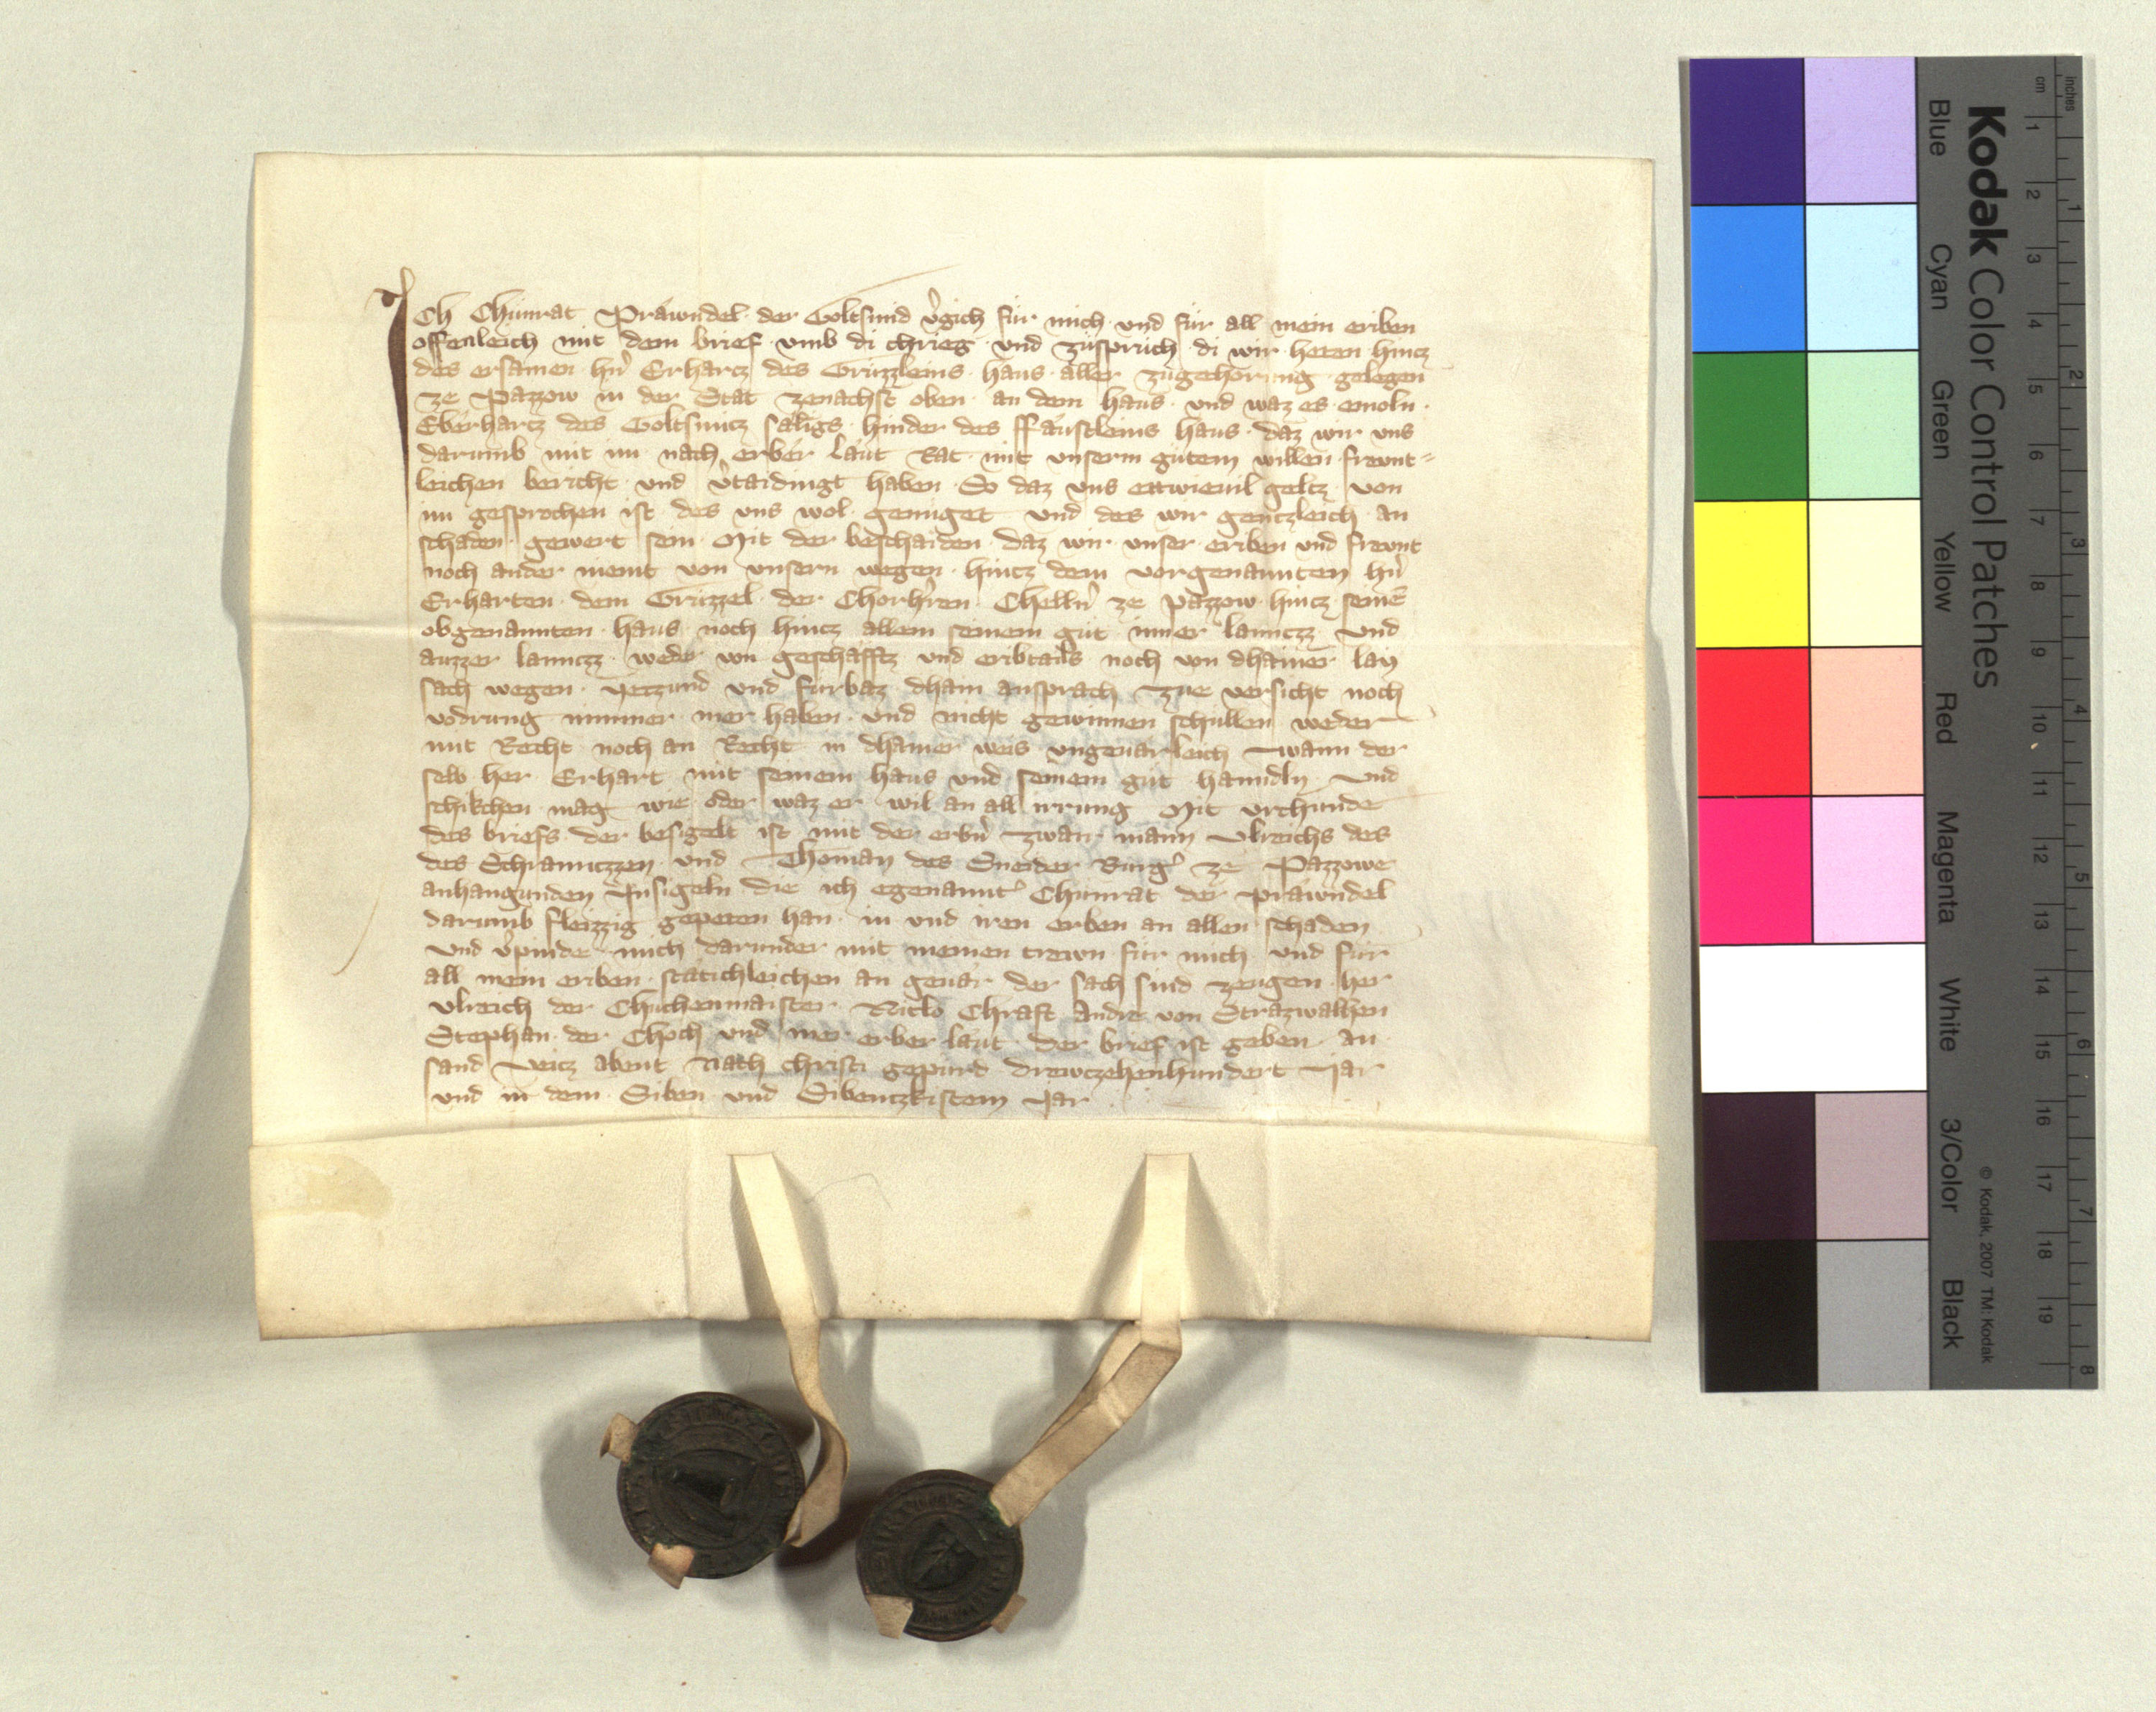 Ich Chunrat Präwndel der Goltsmid v̓gich für mich und für all mein eriben
offenleich mit dem brief vmb di chrieg und zuspruch di wir heten hincz
des ersamen hn̓ Erharcz des Grizzleins haus aller zugehorung gelegen
ze Pazzow in der Stat zenachst oben an dem haus und waz es emoln
Eberharcz des Goltsmicz säligs hinder des ffäustleins haus daz wir uns
darumb mit im nach erber läut Rat mit unserm gütem willen frewnt=
leichen bericht und v̓taidingt haben So daz uns ettwievil geltz von
im gesprochen ist des uns wol genüget und des wir gentzleich an
schaden gewert sein Mit der beschaiden daz wir unser eriben und frewnt
noch ander niemt von unsern wegen hincz dem vorgenannten hn̓
Erharten dem Grizzel der Chorhren Chelln̓ ze Pazzow hincz seinē
obgenannten haus noch hincz allem seinem gut inner lanntzz und
auzzer lanntzz weder von geschäfftz und eribtails noch von dhainer lay
sach wegen Yetzund und fürbaz dhain ansprach zue versicht noch
vodrung nimmer mer haben und nicht gewinnen schullen weder
mit Recht noch an Recht in dhainer weis ungevärleich wann der
selb her Erhart mit seinem haus und seinem gut hanndln und
schikchen mag wie oder waz er wil an all irrung Mit urchunde
des briefs der besigelt ist mit der erbn̓ zwair mann Ulreichs des
des Schranntzzen und Thoman des Sneider Burg̓ ze Pazzowe
anhangunden Insigeln die ich egenannt̓ Chunrat der präwndel
darumb fleizzig gepeten han in und iren erben an allen schaden
Und v̓pinde mich darunder mit meinen trewn für mich und für
all mein eriben stätichleichen an gevär der sach sind zeugen her
Ulreich der Chuchenmaister Niclo Chraft Andre von Strazwalhen
Stephan der Choch und mer erber läut der brief ist geben an
sand Veicz abent Nach christi gepurd drewczehenhundert Jar
und in dem Siben und Sibentzkistem Jar
Kodak Color Control Patches
Blue Cyan Green Yellow Red Magenta White 3/Color Black
© Kodak, 2007 TM: Kodak
cm 1 2 3 4 5 6 7 8 9 10 11 12 13 14 15 16 17 18 19
inches 1 2 3 4 5 6 7 8